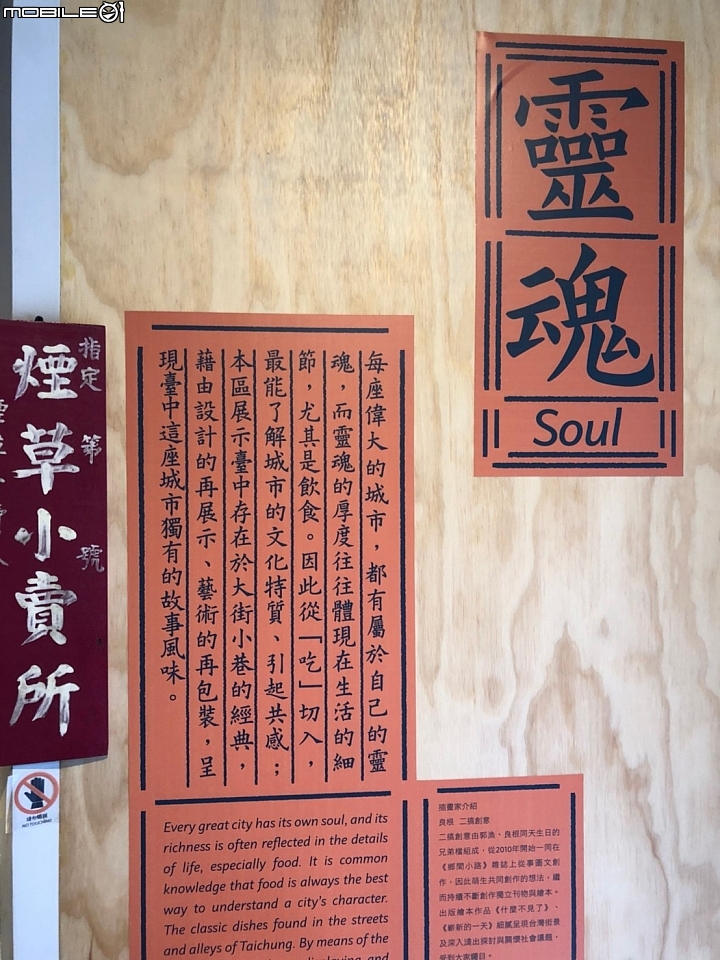 MOBILE01
靈魂
Soul
指定第號
煙草小賣所
每座偉大的城市，都有屬於自己的靈
魂，而靈魂的厚度往往體現在生活的細
節，尤其是飲食。因此從「吃」切入，
最能了解城市的文化特質、引起共感；
本區展示臺中存在於大街小巷的經典，
藉由設計的再展示、藝術的再包裝，呈
現臺中這座城市獨有的故事風味。
請勿觸摸
NO TOUCHING
Every great city has its own soul, and its
richness is often reflected in the details
of life, especially food. It is common
knowledge that food is always the best
way to understand a city's character.
The classic dishes found in the streets
and alleys of Taichung. By means of the
displaying and
插畫家介紹
良根 二搞創意
二搞創意由郭漁、良根同天生日的
兄弟檔組成，從2010年開始一同在
《鄉間小路》雜誌上從事圖文創
作，因此萌生共同創作的想法，繼
而持續不斷創作獨立刊物與繪本。
出版繪本作品《什麼不見了》、
《嶄新的一天》細膩呈現台灣街景
及深入淺出探討與關懷社會議題，
受到大家矚目。